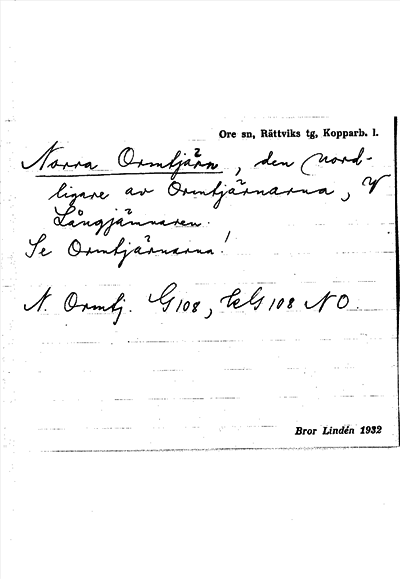 Ore sn, Rättviks tg, Kopparb. l.
Norra Ormtjärn, den nord-
ligare av Ormtjärnarna, V
Långjännaren.
Se Ormtjärnarna!
N. Ormtj. G 108, Ek G 108 NO.
Bror Lindén 1932